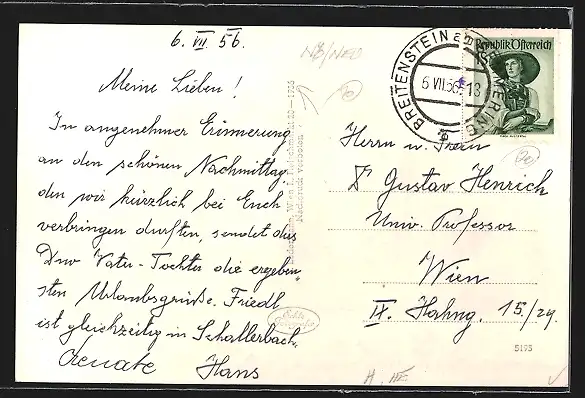 6. VII. 56.
Meine Lieben!
In angenehmer Erinnerung
an den schönen Nachmittag,
den wir kürzlich bei Euch
verbringen durften, sendet das
Duo Vater-Tochter die ergeben-
sten Urlaubsgrüße. Friedl
ist gleichzeitig in Schallerbach.
Renate Hans
NÖ/NEU
Nachdruck verboten
Echte
BREITENSTEIN a. SEMMERING
6.VII.56.-18
Republik Österreich
Herrn u. Frau
Dr Gustav Henrich
Univ. Professor
Wien
IX. Hahng. 15/29.
S195